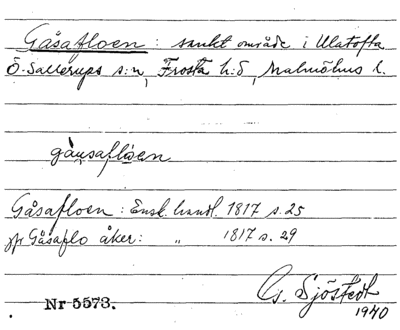 Gåsafloen : sankt område i Ulatofta
Ö. Sallerups s:n, Frosta h:d, Malmöhus l.
gåusaflöen
Gåsafloen : Ensk. handl. 1817 s. 25
jfr Gåsaflo åker : " 1817 s. 29
G. Sjöstedt
1940
Nr 5573.